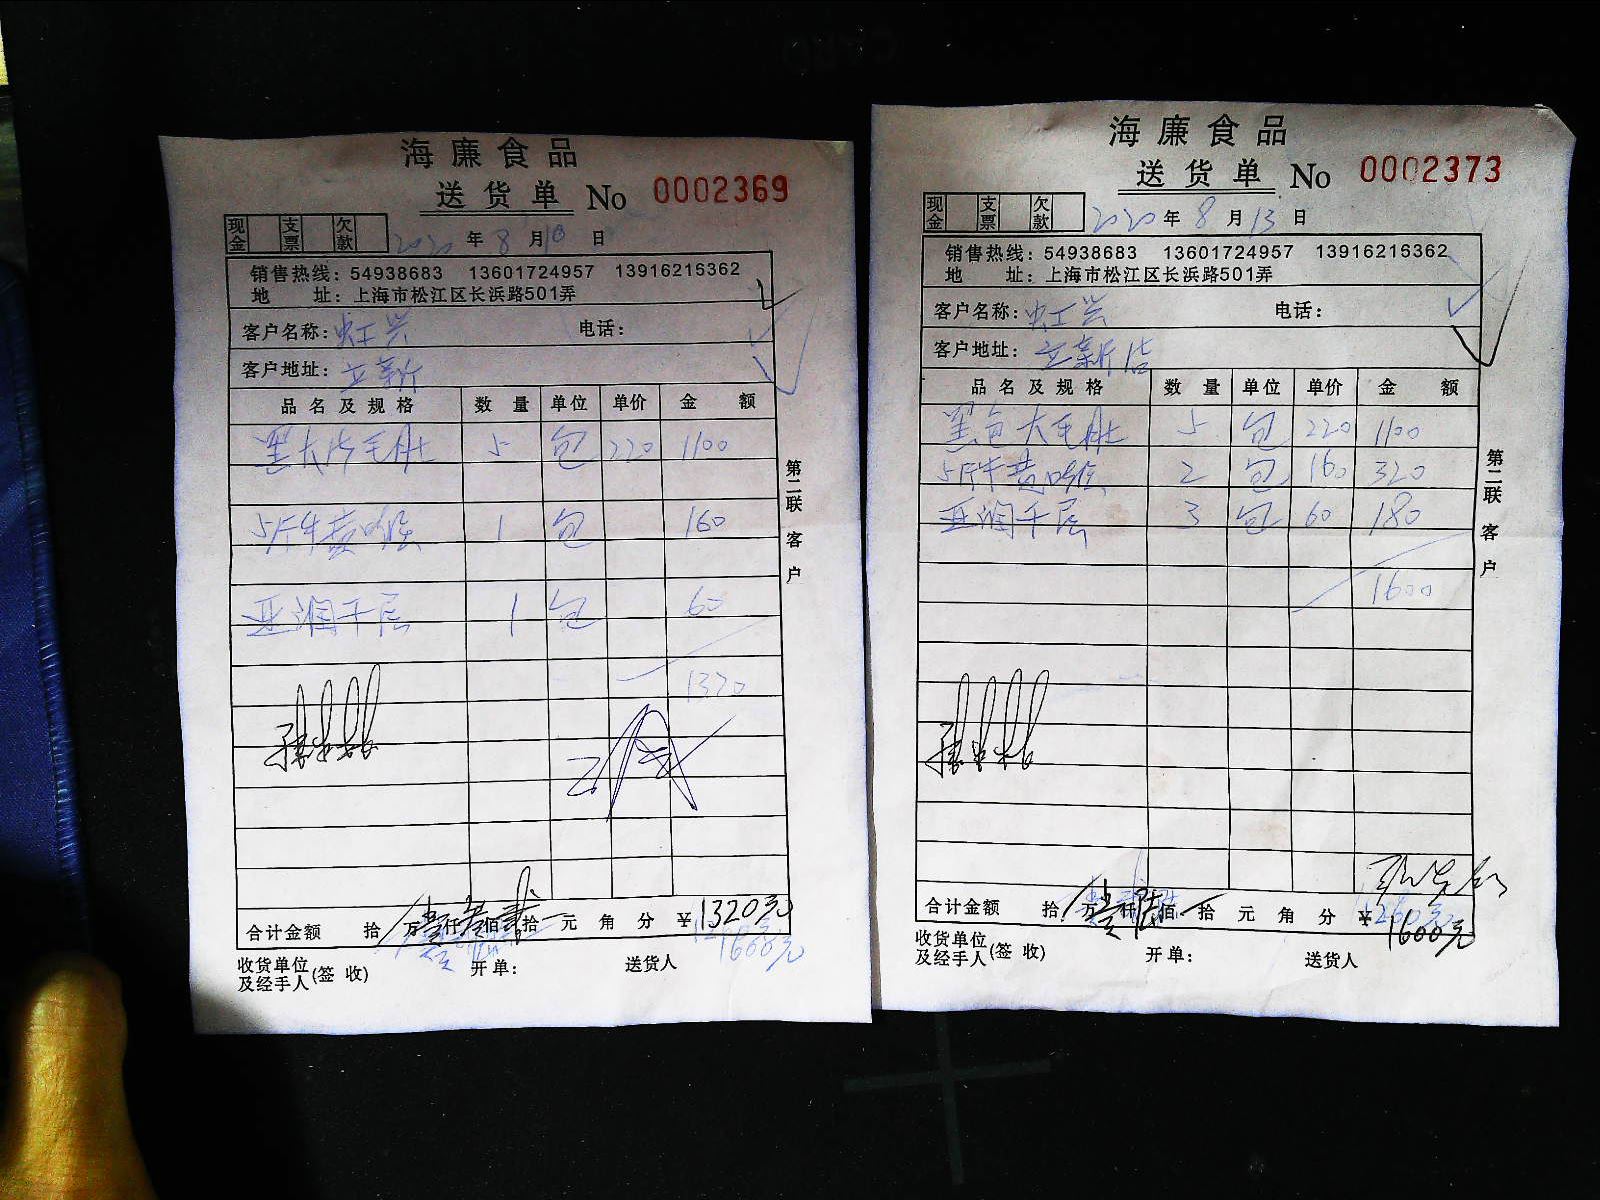 海廉食品
送货单 No 0002369
现金 支票 欠款 2020年8月10日
销售热线：54938683 13601724957 13916215362
地 址：上海市松江区长浜路501弄
客户名称：虹兴 电话：
客户地址：立新
品名及规格 数量 单位 单价 金额
黑大片毛肚 5 包 220 1100
5斤牛黄喉 1 包 160
亚润千层 1 包 60
1320
合计金额 拾 万 仟 佰 拾 元 角 分 ¥1320元
1600元
收货单位及经手人(签收) 开单： 送货人
第二联 客户
海廉食品
送货单 No 0002373
现金 支票 欠款 2020年8月13日
销售热线：54938683 13601724957 13916215362
地 址：上海市松江区长浜路501弄
客户名称：虹兴 电话：
客户地址：立新店
品名及规格 数量 单位 单价 金额
黑色大毛肚 5 包 220 1100
5斤牛黄喉 2 包 160 320
亚润千层 3 包 60 180
1600
合计金额 拾 万 仟 佰 拾 元 角 分 ¥1600元
收货单位及经手人(签收) 开单： 送货人
第二联 客户